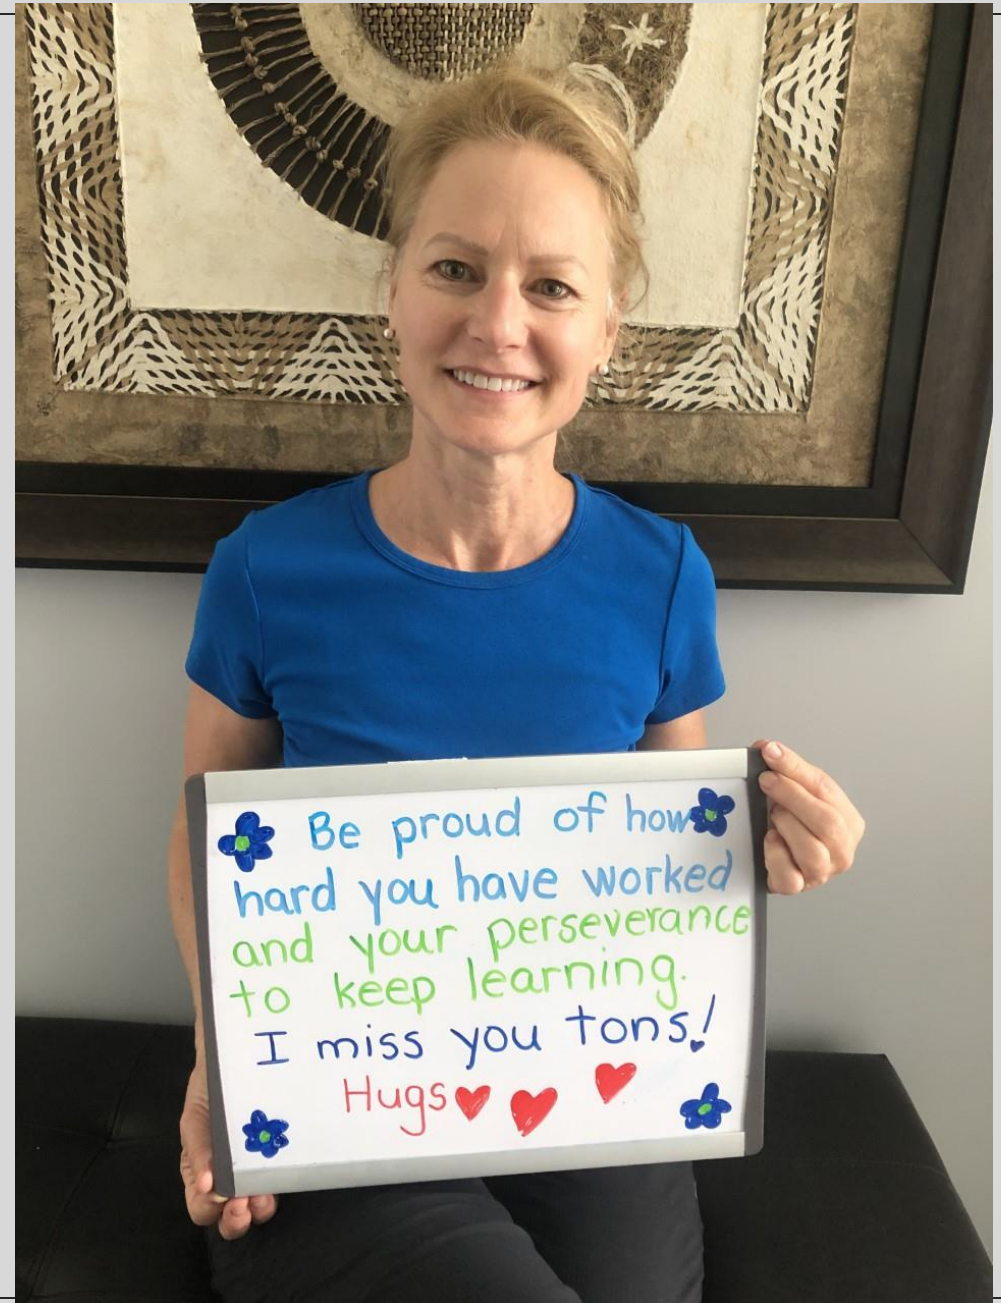 Be proud of how
hard you have worked
and your perseverance
to keep learning.
I miss you tons!
Hugs